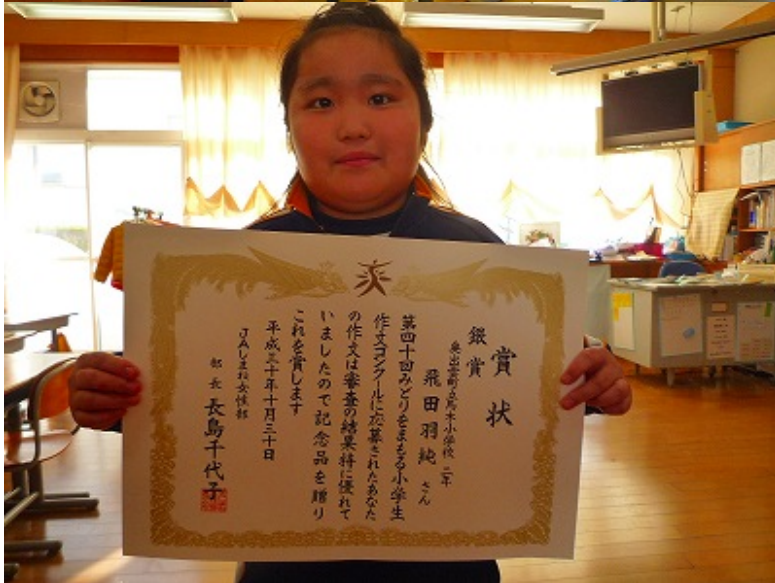 賞状
銀賞
奥出雲町立馬木小学校 三年
飛田羽純 さん
第四十回みどりをまもる小学生
作文コンクールに応募されたあなた
の作文は審査の結果特に優れて
いましたので記念品を贈り
これを賞します
平成三十年十月三十日
JAしまね女性部
部長 長島千代子